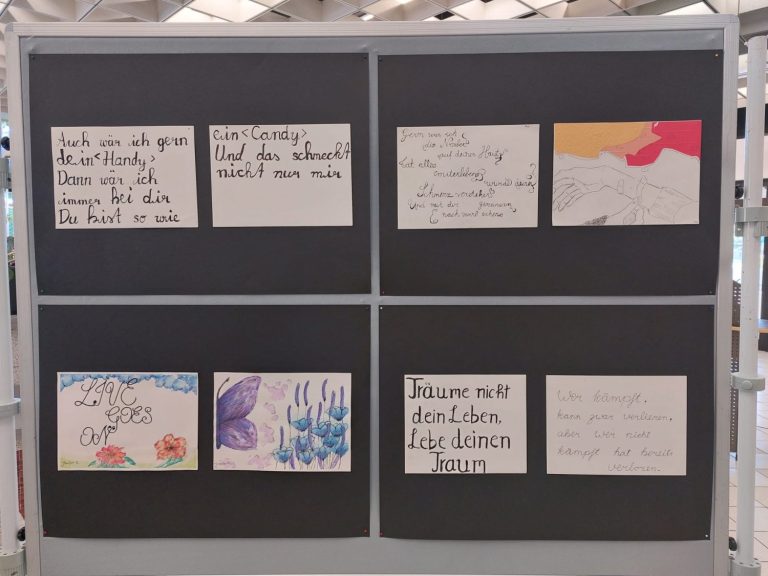 Auch wär ich gern
dein <Handy>
Dann wär ich
immer bei dir
Du bist so wie
ein <Candy>
Und das schmeckt
nicht nur mir
Gern wär ich
die Narbe
auf deiner Haut
Hat alles
miterleben
Schmerz verstehen
Und mit dir
LIVE
GOES
ON
Träume nicht
dein Leben,
Lebe deinen
Traum
Wer kämpft,
kann zwar verlieren,
aber wer nicht
kämpft hat bereits
verloren.